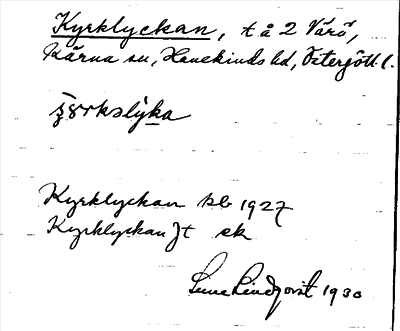 Kyrklyckan, t å 2 Värö,
Kärna sn, Hanekinds hd, Östergötl. l.
Kyrklyckan kb 1927
Kyrklyckan Jt ek
Sune Lindqvist 1930